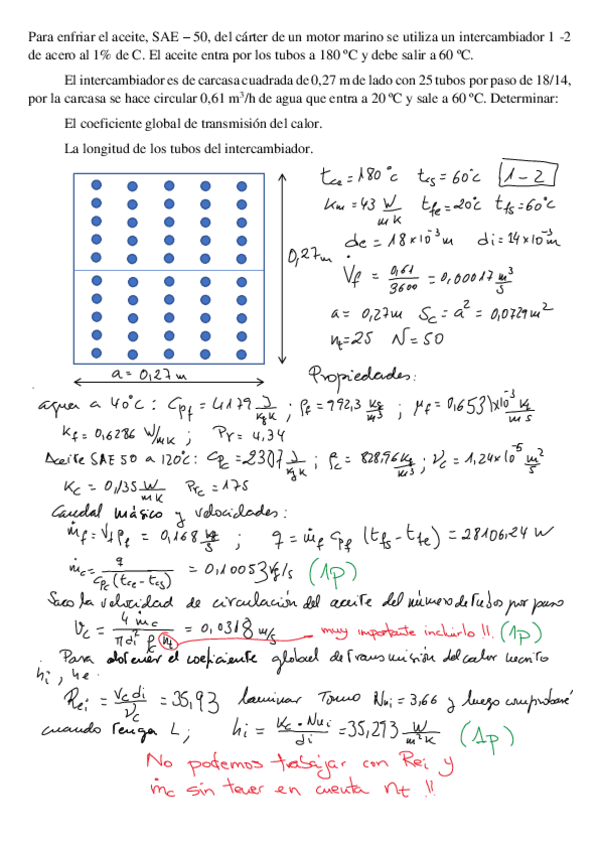 Para enfriar el aceite, SAE – 50, del cárter de un motor marino se utiliza un intercambiador 1 -2
de acero al 1% de C. El aceite entra por los tubos a 180 ºC y debe salir a 60 ºC.
El intercambiador es de carcasa cuadrada de 0,27 m de lado con 25 tubos por paso de 18/14,
por la carcasa se hace circular 0,61 m³/h de agua que entra a 20 ºC y sale a 60 ºC. Determinar:
El coeficiente global de transmisión del calor.
La longitud de los tubos del intercambiador.
tce = 180ºC tcs = 60ºC 1-2
Km = 43 W/mK tfe = 20ºC tfs = 60ºC
de = 18×10⁻³ m di = 14×10⁻³ m
0,27m
V̇f = 0,61/3600 = 0,00017 m³/s
a = 0,27m Sc = a² = 0,0729 m²
nt = 25 N = 50
a = 0,27m
Propiedades:
agua a 40ºC: Cpf = 4179 J/kgK ; ρf = 992,3 kg/m³ ; μf = 0,6531×10⁻³ kg/ms
Kf = 0,6286 W/mK ; Pr = 4,34
Aceite SAE 50 a 120ºC: Cpc = 2307 J/kgK ; ρc = 828,96 kg/m³ ; νc = 1,24×10⁻⁵ m²/s
Kc = 0,135 W/mK Prc = 175
Caudal másico y velocidades:
ṁf = V̇f ρf = 0,168 kg/s ; q = ṁf Cpf (tfs - tfe) = 28106,24 W
ṁc = q/Cpc(tce - tcs) = 0,10053 kg/s (1p)
Saco la velocidad de circulación del aceite del número de tubos por paso
Vc = 4ṁc/πdi² ρc nt = 0,0318 m/s muy importante incluirlo !!. (1p)
Para obtener el coeficiente global de transmisión del calor necesito
hi, he.
Rei = Vc di/νc = 35,93 laminar Tomo Nui = 3,66 y luego comprobaré
cuando tenga L; hi = Kc · Nui/di = 35,293 W/m²K (1p)
No podemos trabajar con Rei y
ṁc sin tener en cuenta nt !!